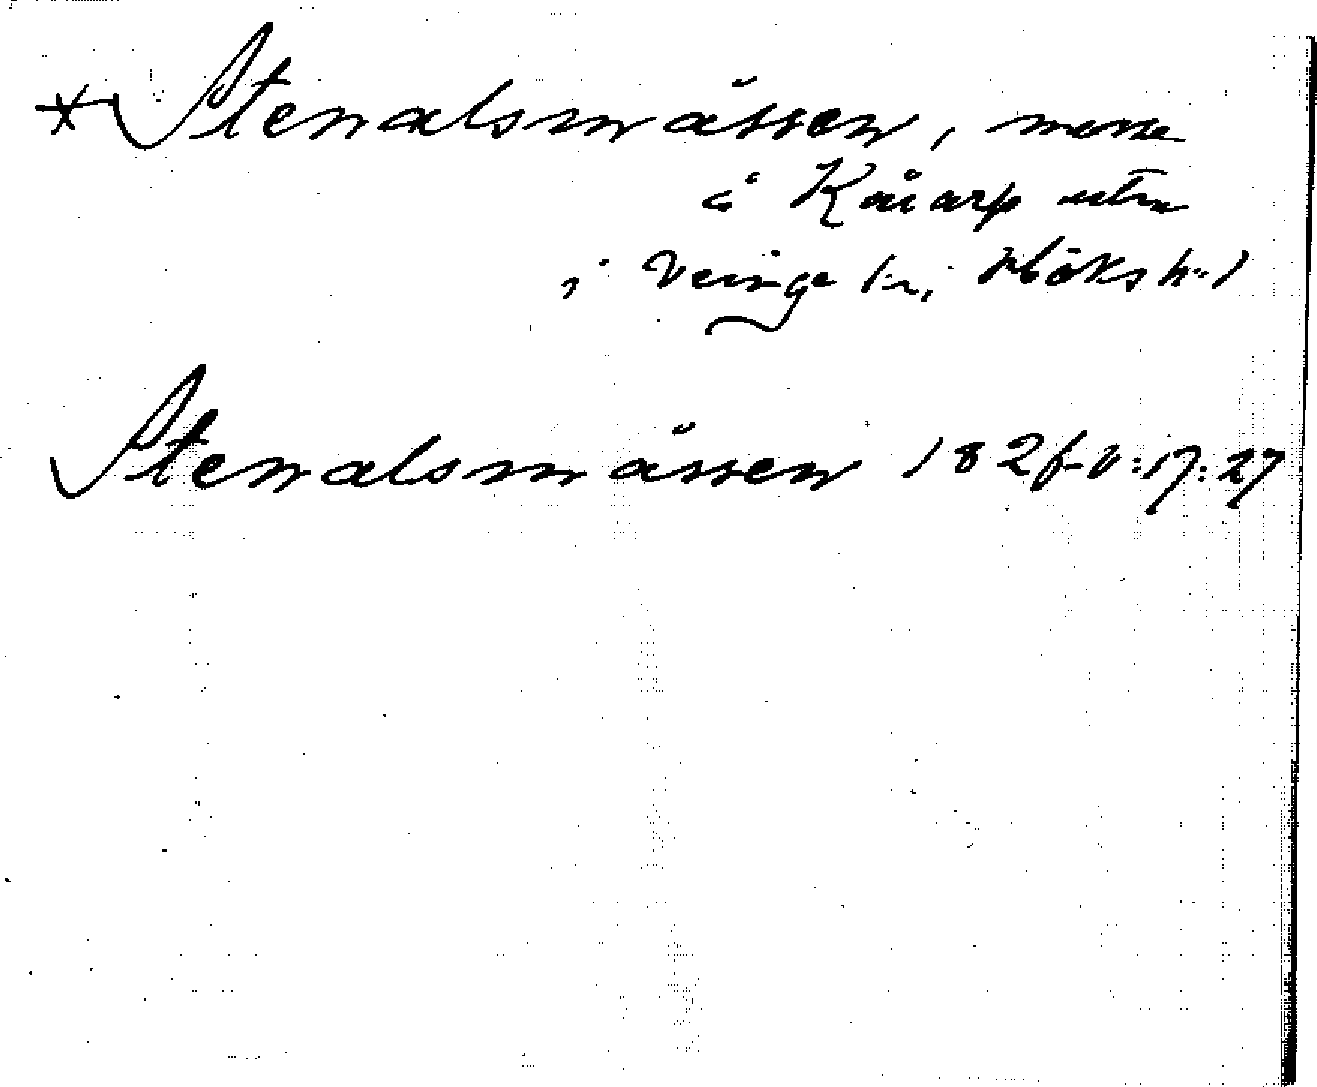 * Stenalsmåssen, mosse
å Kåarp utm
i Veinge sn, Höks hd
Stenalsmåssen 182 V:17:27